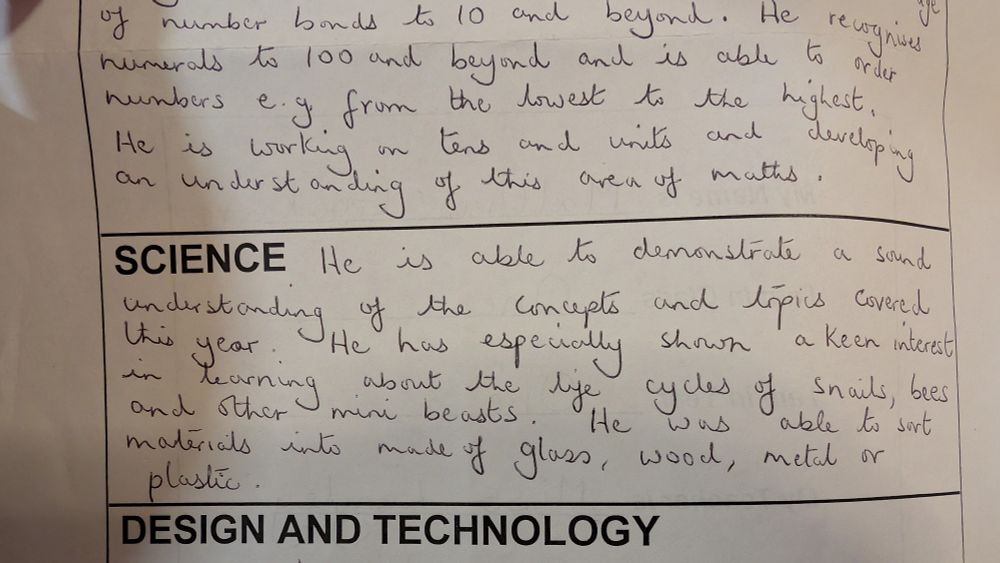 of number bonds to 10 and beyond. He recognises
numerals to 100 and beyond and is able to order
numbers e.g. from the lowest to the highest.
He is working on tens and units and developing
an understanding of this area of maths.
SCIENCE He is able to demonstrate a sound
understanding of the concepts and topics covered
this year. He has especially shown a keen interest
in learning about the life cycles of snails, bees
and other mini beasts. He was able to sort
materials into made of glass, wood, metal or
plastic.
DESIGN AND TECHNOLOGY